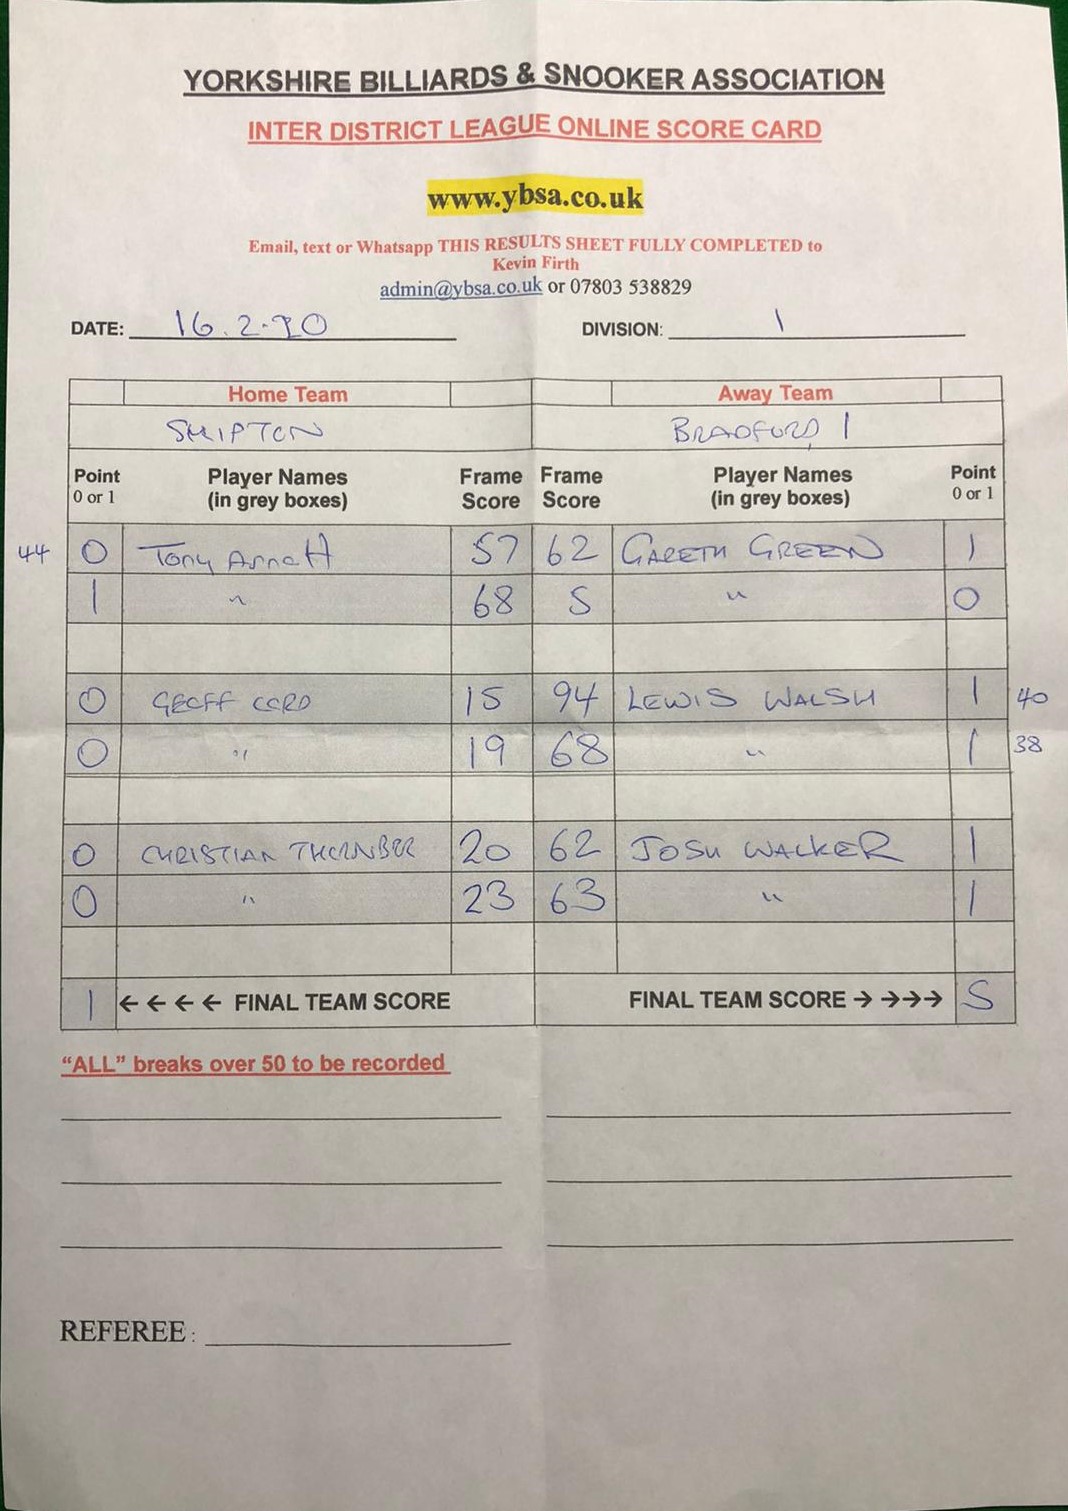 YORKSHIRE BILLIARDS & SNOOKER ASSOCIATION
INTER DISTRICT LEAGUE ONLINE SCORE CARD
www.ybsa.co.uk
Email, text or Whatsapp THIS RESULTS SHEET FULLY COMPLETED to
Kevin Firth
admin@ybsa.co.uk or 07803 538829
DATE: 16.2.20 DIVISION: 1
Home Team Away Team
SHIPTON BRADFORD 1
Point Player Names Frame Frame Player Names Point
0 or 1 (in grey boxes) Score Score (in grey boxes) 0 or 1
44 0 Tony Arnett 57 62 GARETH GREEN 1
1 " 68 5 " 0
0 GEOFF CORD 15 94 LEWIS WALSH 1 40
0 " 19 68 " 1 38
0 CHRISTIAN THORNBER 20 62 JOSH WALKER 1
0 " 23 63 " 1
1 ←←←← FINAL TEAM SCORE FINAL TEAM SCORE →→→→ 5
“ALL” breaks over 50 to be recorded
REFEREE: